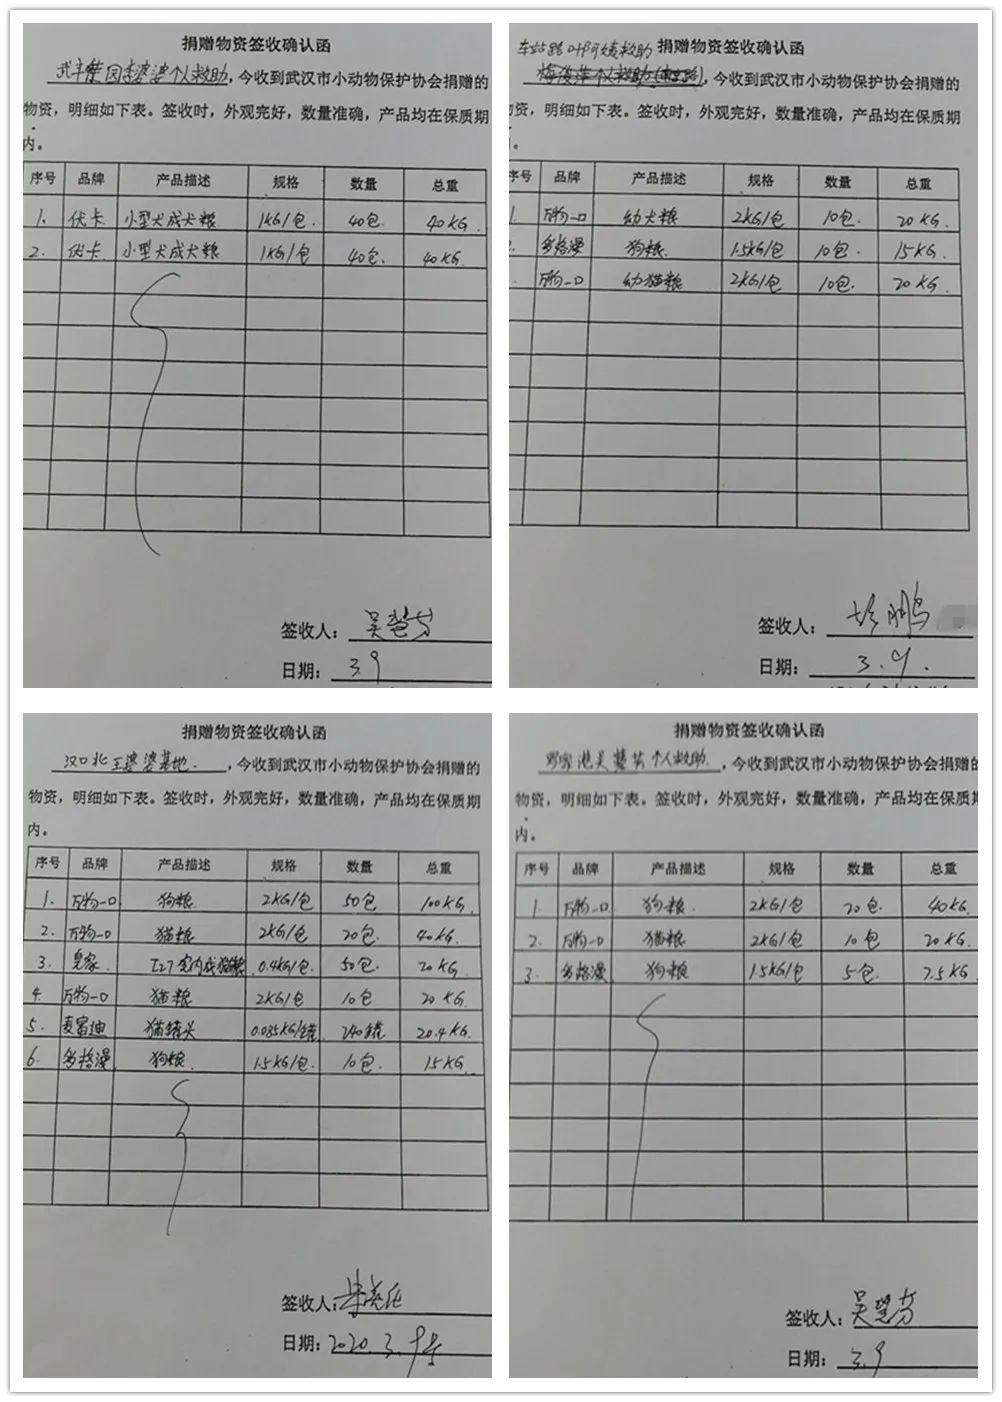 捐赠物资签收确认函
武丰堤园李婆婆个人救助，今收到武汉市小动物保护协会捐赠的
物资，明细如下表。签收时，外观完好，数量准确，产品均在保质期
内。
序号 品牌 产品描述 规格 数量 总重
1. 伏卡 小型犬成犬粮 1KG/包. 40包. 40KG.
2. 伏卡 小型犬成犬粮 1KG/包 40包. 40KG.
签收人：吴
日期：3.9
车站路 救助 捐赠物资签收确认函
，今收到武汉市小动物保护协会捐赠的
物资，明细如下表。签收时，外观完好，数量准确，产品均在保质期
内。
序号 品牌 产品描述 规格 数量 总重
1. 万物一口 幼犬粮 2KG/包 10包. 20KG.
多格漫 狗粮. 1.5KG/包 10包. 15KG.
万物一口 幼猫粮 2KG/包 10包. 20KG.
签收人： 鹏
日期： 3.9.
捐赠物资签收确认函
汉口北王婆婆基地. ，今收到武汉市小动物保护协会捐赠的
物资，明细如下表。签收时，外观完好，数量准确，产品均在保质期
内。
序号 品牌 产品描述 规格 数量 总重
1. 万物一口 狗粮 2KG/包 50包 100KG.
2. 万物一口 猫粮 2KG/包 20包. 40KG.
3. 皇家. 室内成猫粮 0.4KG/包. 50包. 20KG.
4. 万物一口 猫粮 2KG/包 10包 20KG.
5. 麦富迪 猫罐头 0.085KG/罐 240罐 20.4KG.
6. 多格漫. 狗粮. 1.5KG/包. 10包. 15KG.
签收人：
日期：2020.3.9
捐赠物资签收确认函
个人救助. ，今收到武汉市小动物保护协会捐赠的
物资，明细如下表。签收时，外观完好，数量准确，产品均在保质期
内。
序号 品牌 产品描述 规格 数量 总重
1. 万物一口 狗粮. 2KG/包 20包. 40KG.
2. 万物一口 猫粮 2KG/包 10包 20KG.
3. 多格漫 狗粮 1.5KG/包 5包. 7.5KG.
签收人：吴
日期：3.9